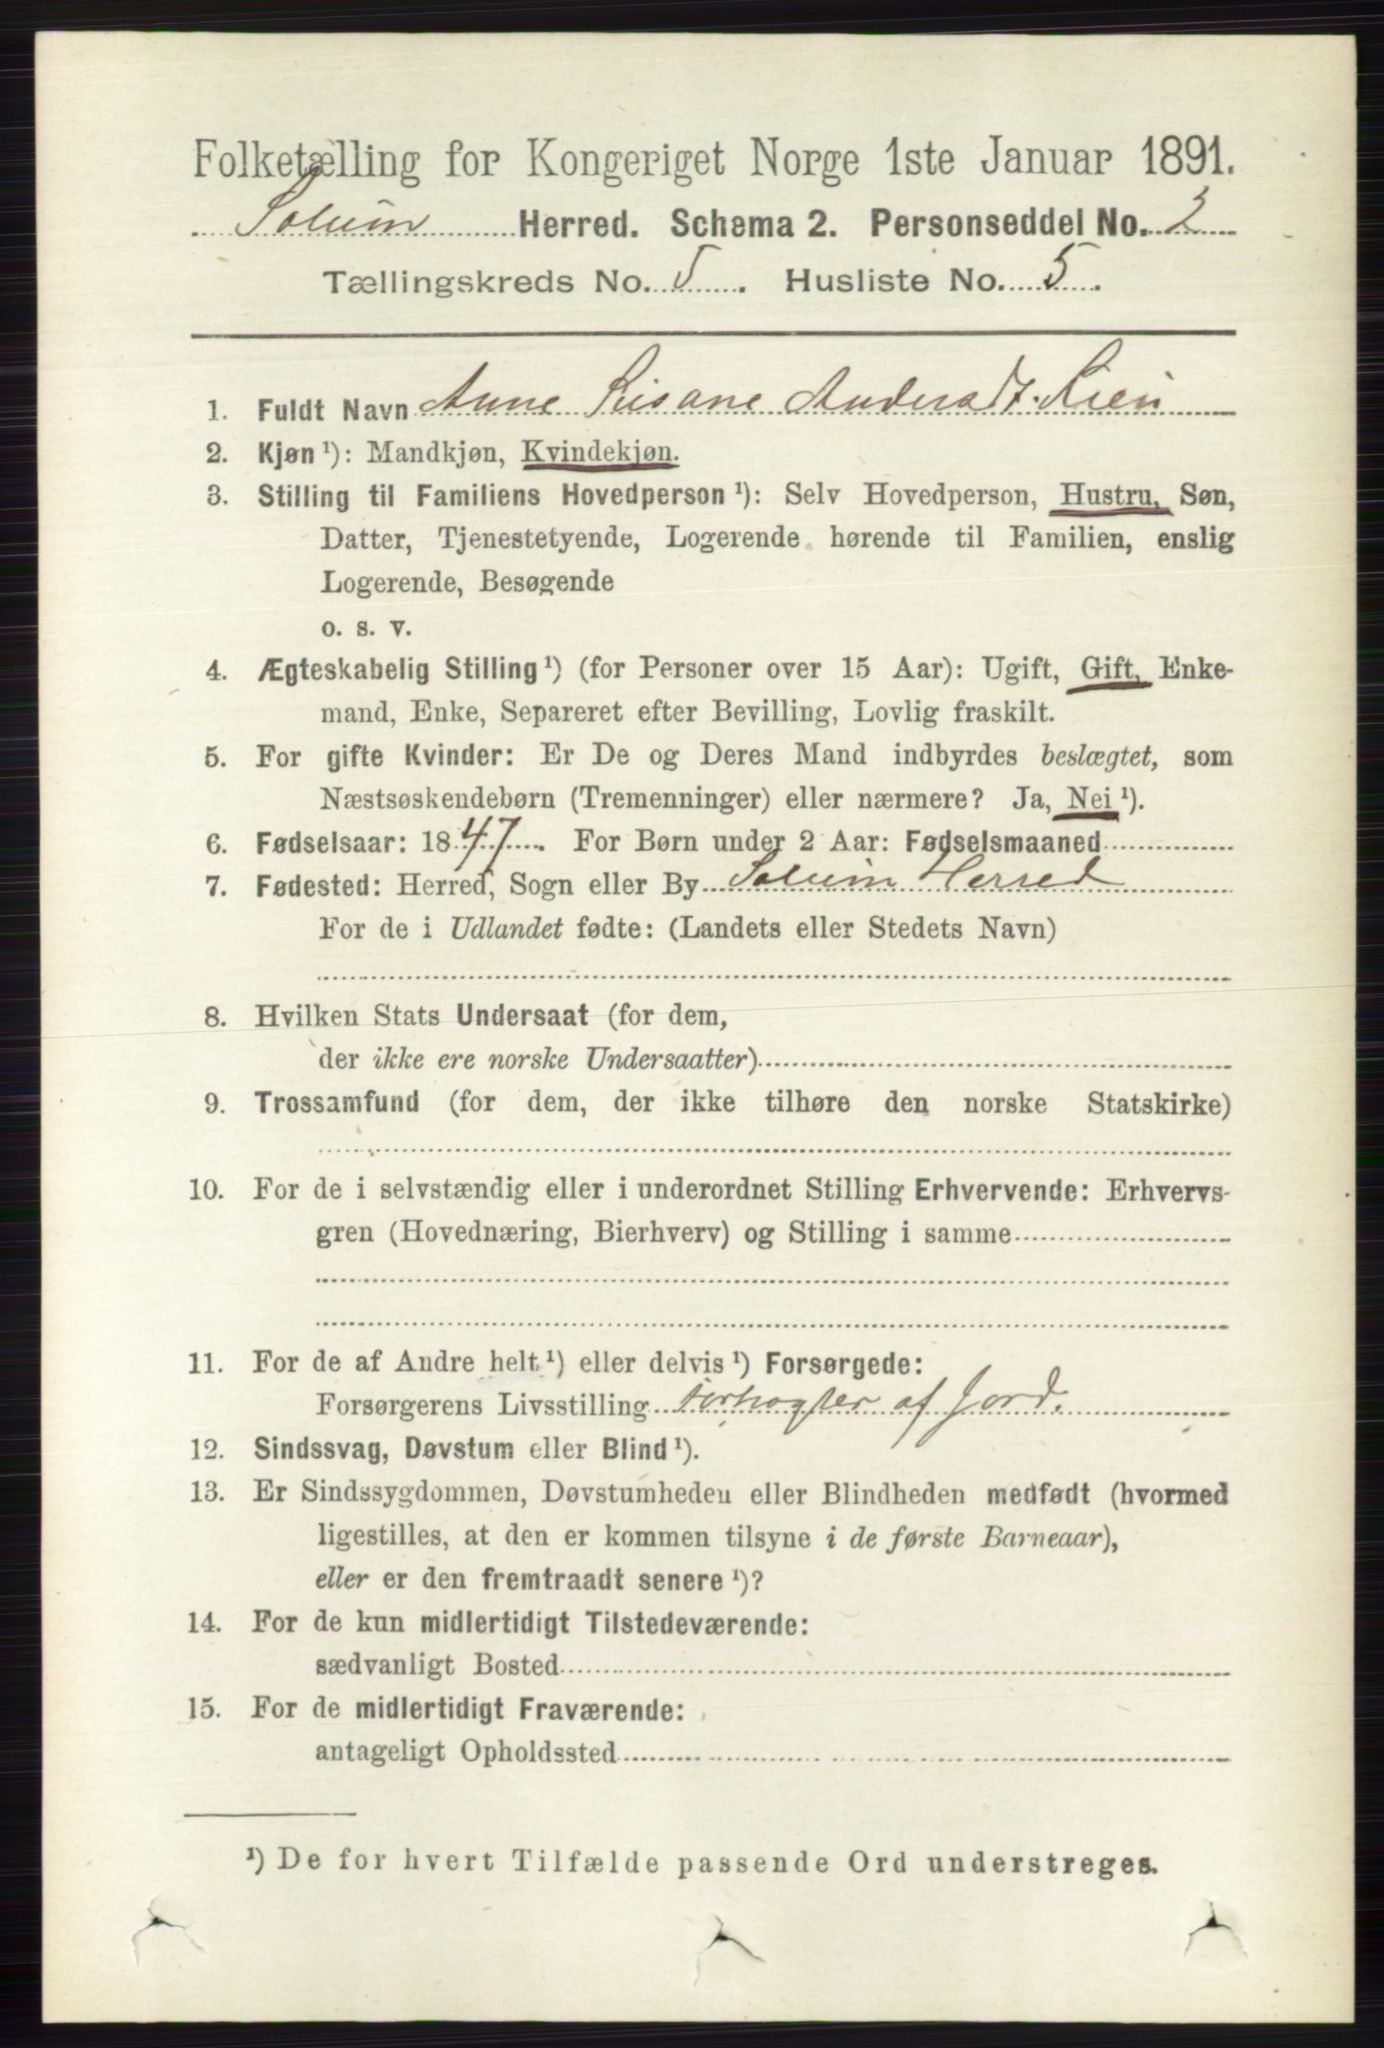 Folketælling for Kongeriget Norge 1ste Januar 1891.
Solum Herred. Schema 2. Personseddel No. 2
Tællingskreds No. 5. Husliste No. 5.
1. Fuldt Navn Anne Susane Andersdt.
2. Kjøn ¹): Mandkjøn, Kvindekjøn.
3. Stilling til Familiens Hovedperson ¹): Selv Hovedperson, Hustru, Søn,
Datter, Tjenestetyende, Logerende hørende til Familien, enslig
Logerende, Besøgende
o. s. v.
4. Ægteskabelig Stilling ¹) (for Personer over 15 Aar): Ugift, Gift, Enke-
mand, Enke, Separeret efter Bevilling, Lovlig fraskilt.
5. For gifte Kvinder: Er De og Deres Mand indbyrdes beslægtet, som
Næstsøskendebørn (Tremenninger) eller nærmere? Ja, Nei ¹).
6. Fødselsaar: 1847. For Børn under 2 Aar: Fødselsmaaned
7. Fødested: Herred, Sogn eller By Solum Herred
For de i Udlandet fødte: (Landets eller Stedets Navn)
8. Hvilken Stats Undersaat (for dem,
der ikke ere norske Undersaatter)
9. Trossamfund (for dem, der ikke tilhøre den norske Statskirke)
10. For de i selvstændig eller i underordnet Stilling Erhvervende: Erhvervs-
gren (Hovednæring, Bierhverv) og Stilling i samme
11. For de af Andre helt ¹) eller delvis ¹) Forsørgede:
Forsørgerens Livsstilling af Jord.
12. Sindssvag, Døvstum eller Blind ¹).
13. Er Sindssygdommen, Døvstumheden eller Blindheden medfødt (hvormed
ligestilles, at den er kommen tilsyne i de første Barneaar),
eller er den fremtraadt senere ¹)?
14. For de kun midlertidigt Tilstedeværende:
sædvanligt Bosted
15. For de midlertidigt Fraværende:
antageligt Opholdssted
¹) De for hvert Tilfælde passende Ord understreges.